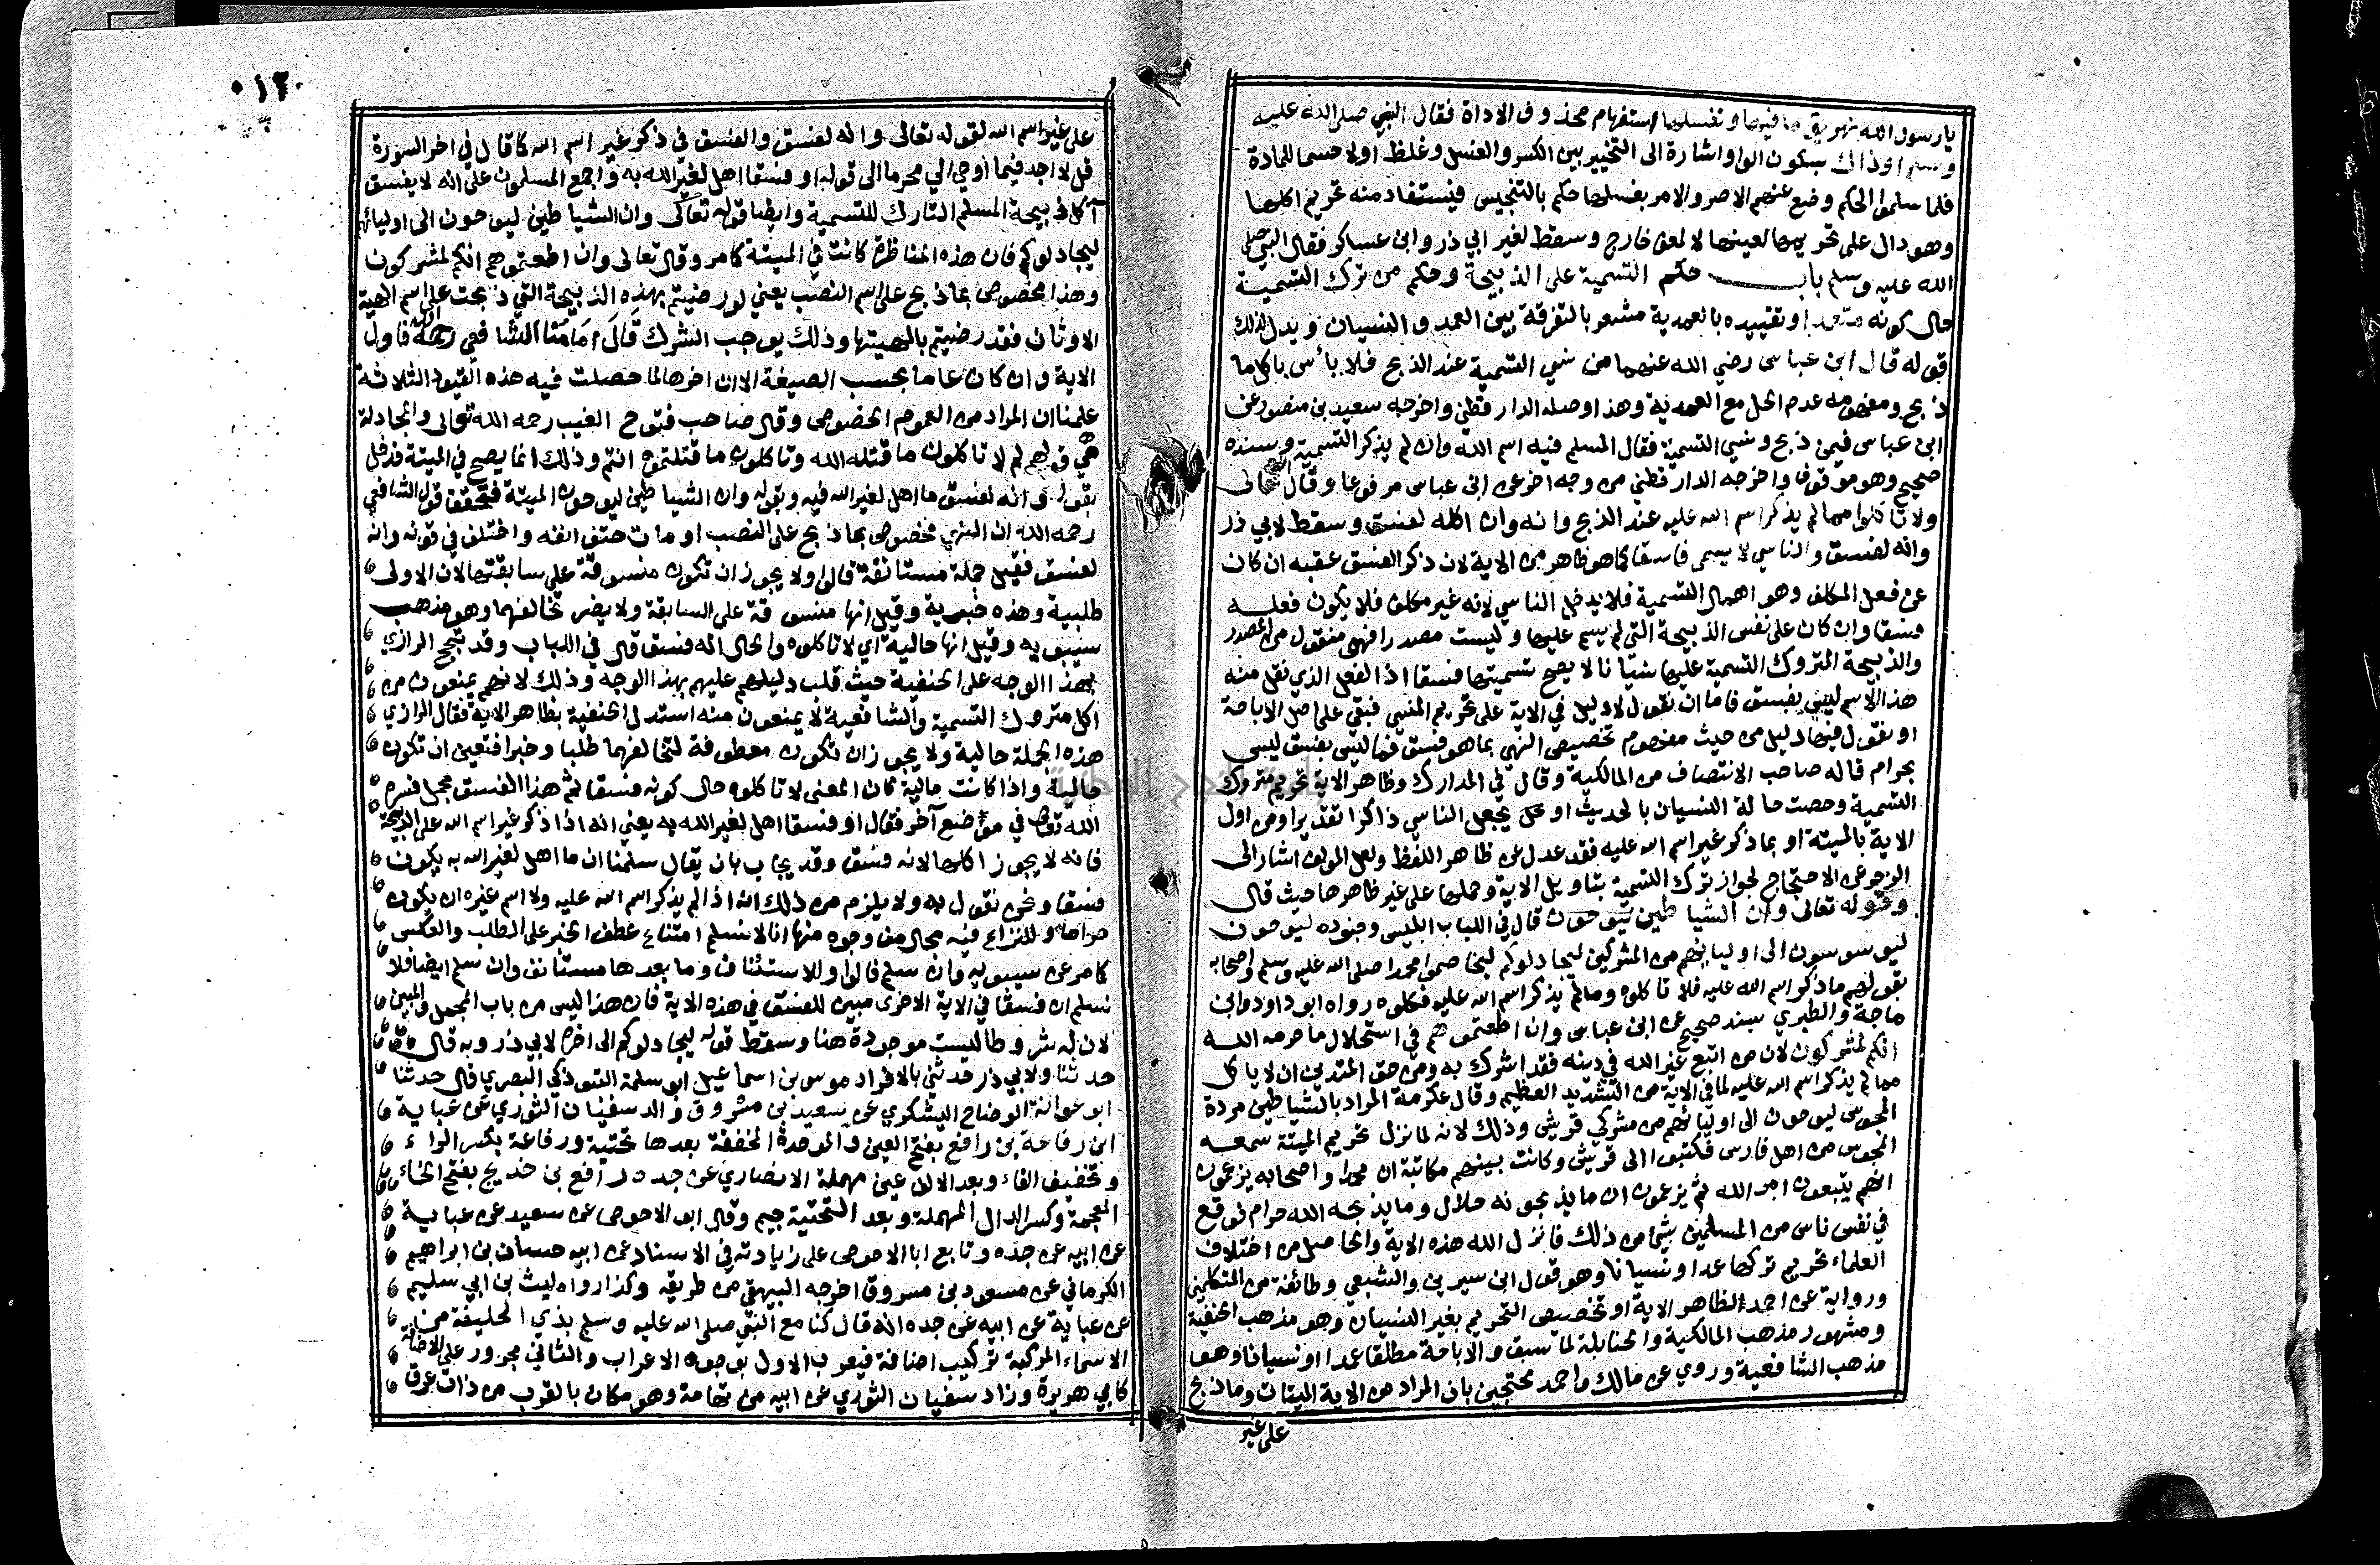 يا رسول الله نهريق ما فيها ونغسلها استفهام محذوف الاداة فقال النبي صلى الله عليه
وسلم او ذاك بسكون الواو اشارة الى التخيير بين الكسر والغسل وغلظ اولا حسما للمادة
فلما سلموا الحكم وضع عنهم الاصر والامر بغسلها حكم بالتنجيس فيستفاد منه تحريم اكلها
وهو دال على تحريمها لعينها لا لمعنى خارج وسقط لغير ابي ذر وابن عساكر فقال النبي صلى
الله عليه وسلم باب حكم التسمية على الذبيحة وحكم من ترك التسمية
حال كونه متعمدا وتقييده بالعمدية مشعر بالتفرقة بين العمد والنسيان ويدل لذلك
قوله قال ابن عباس رضي الله عنهما من نسي التسمية عند الذبح فلا بأس باكل ما
ذبح ومفهومه عدم الحل مع العمدية وهذا وصله الدارقطني واخرجه سعيد بن منصور عن
ابن عباس فيمن ذبح ونسي التسمية فقال المسلم فيه اسم الله وان لم يذكر التسمية وسنده
صحيح وهو موقوف واخرجه الدارقطني من وجه اخر عن ابن عباس مرفوعا وقال تعالى
ولا تاكلوا مما لم يذكر اسم الله عليه عند الذبح وانه وان اكله لفسق وسقط لابي ذر
وانه لفسق والناسي لا يسمى فاسقا كما هو ظاهر من الاية لان ذكر الفسق عقبه ان كان
عن فعل المكلف وهو اهمال التسمية فلا يدخل الناسي لانه غير مكلف فلا يكون فعله
فسقا وان كان على نفس الذبيحة التي لم يسم عليها وليست مصدرا فهي منقول من المصدر
والذبيحة المتروك التسمية عليها نسيانا لا يصح تسميتها فسقا اذ الفعل الذي نقل منه
هذا الاسم ليس بفسق فاما ان نقول لا دليل في الاية على تحريم المنسي فبقي على اصل الاباحة
او نقول فيها دليل من حيث مفهوم تخصيص النهي بما هو فسق فما ليس بفسق ليس
بحرام قاله صاحب الانتصاف من المالكية وقال في المدارك وظاهر الاية تحريم متروك
التسمية وخصت حالة النسيان بالحديث او بجعل الناسي ذاكرا تقديرا ومن اول
الاية بالميتة او بما ذكر غير اسم الله عليه فقد عدل عن ظاهر اللفظ ولعل المولف اشار الى
الزجر عن الاحتجاج لجواز ترك التسمية بتاويل الاية وحملها على غير ظاهرها حيث قال
وقوله تعالى وان الشياطين ليوحون قال في اللباب ابليس وجنوده ليوحون
ليوسوسون الى اوليائهم من المشركين ليجادلوكم ليخاصموا محمدا صلى الله عليه وسلم واصحابه
بقولهم ما ذكر اسم الله عليه فلا تاكلوه وما لم يذكر اسم الله عليه فكلوه رواه ابو داود وابن
ماجة والطبري بسند صحيح عن ابن عباس وان اطعتموهم في استحلال ما حرمه الله
انكم لمشركون لان من اتبع غير الله في دينه فقد اشرك به ومن حق المتدين ان لا ياكل
مما لم يذكر اسم الله عليه لما في الاية من التشديد العظيم وقال عكرمة المراد بالشياطين مردة
المجوس ليوحون الى اوليائهم من مشركي قريش وذلك لانه لما نزل تحريم الميتة سمعه
المجوس من اهل فارس فكتبوا الى قريش وكانت بينهم مكاتبة ان محمدا واصحابه يزعمون
انهم يتبعون امر الله ثم يزعمون ان ما يذبحونه حلال وما يذبحه الله حرام فوقع
في نفس ناس من المسلمين شئ من ذلك فانزل الله هذه الاية والحاصل من اختلاف
العلماء تحريم تركها عمدا ونسيانا وهو قول ابن سيرين والشعبي وطائفة من المتكلمين
ورواية عن احمد لظاهر الاية او تخصيص التحريم بغير النسيان وهو مذهب الحنفية
ومشهور مذهب المالكية والحنابلة لما سبق والاباحة مطلقا عمدا او نسيانا وهو
مذهب الشافعية وروي عن مالك واحمد محتجين بان المراد من الاية الميتات وما ذبح
على غير
٠١٢٠
على غير اسم الله لقوله تعالى وانه لفسق والفسق في ذكر غير اسم الله كما قال في اخر السورة
قل لا اجد فيما اوحي الي محرما الى قوله او فسقا اهل لغير الله به واجمع المسلمون على انه لا يفسق
آكل ذبيحة المسلم التارك للتسمية وايضا قوله تعالى وان الشياطين ليوحون الى اوليائهم
ليجادلوكم فان هذه المناظرة كانت في الميتة كما مر وقال تعالى وان اطعتموهم انكم لمشركون
وهذا مخصوص بما ذبح على اسم النصب يعني لو رضيتم بهذه الذبيحة التي ذبحت على اسم الهية
الاوثان فقد رضيتم بالهيتها وذلك يوجب الشرك قال امامنا الشافعي رحمه الله فاول
الاية وان كان عاما بحسب الصيغة الا ان اخرها لما حصلت فيه هذه القيود الثلاثة
علمنا ان المراد من العموم الخصوص وقال صاحب فتوح الغيب رحمه الله تعالى والمجادلة
هي قولهم لم لا تاكلون ما قتله الله وتاكلون ما قتلتموه انتم وذلك انما يصح في الميتة فدخل
بقوله وانه لفسق ما اهل لغير الله فيه وبقوله وان الشياطين ليوحون الميتة فتحقق قول الشافعي
رحمه الله ان النهي مخصوص بما ذبح على النصب او مات حتف انفه واختلف في قوله وانه
لفسق فقيل جملة مستانفة قالوا ولا يجوز ان تكون منسوقة على سابقتها لان الاولى
طلبية وهذه خبرية وقيل انها منسوقة على السابقة ولا يضر تخالفهما وهو مذهب
سيبويه وقيل انها حالية اي لا تاكلوه والحال انه فسق قال في اللباب وقد تبجح الرازي
بهذا الوجه على الحنفية حيث قلب دليلهم عليهم بهذا الوجه وذلك لانهم يمنعون من
اكل متروك التسمية والشافعية لا يمنعون منه استدل الحنفية بظاهر الاية فقال الرازي
هذه الجملة حالية ولا يجوز ان تكون معطوفة لتخالفهما طلبا وخبرا فتعين ان تكون
حالية واذا كانت حالية كان المعنى لا تاكلوه حال كونه فسقا ثم هذا الفسق مجمل فسره
الله تعالى في موضع آخر فقال او فسقا اهل لغير الله به يعني انه اذا ذكر غير اسم الله على الذبيحة
فانه لا يجوز اكلها لانه فسق وقد يجاب بان يقال سلمنا ان ما اهل لغير الله به يكون
فسقا ونحن نقول به ولا يلزم من ذلك انه اذا لم يذكر اسم الله عليه ولا اسم غيره ان يكون
حراما وللنزاع فيه مجال من وجوه منها انا لا نسلم امتناع عطف الخبر على الطلب والعكس
كما مر عن سيبويه وان سلم فالواو للاستئناف وما بعدها مستانف وان سلم ايضا فلا
نسلم ان فسقا في الاية الاخرى مبين للفسق في هذه الاية فان هذا ليس من باب المجمل والمبين
لان له شروطا ليست موجودة هنا وسقط قوله ليجادلوكم الى اخره لابي ذر وبه قال
حدثنا ولابي ذر حدثني بالافراد موسى بن اسماعيل ابو سلمة التبوذكي البصري قال حدثنا
ابو عوانة الوضاح اليشكري عن سعيد بن مسروق والد سفيان الثوري عن عباية
ابن رفاعة بن رافع بفتح العين والموحدة المخففة بعدها تحتية ورفاعة بكسر الراء
وتخفيف الفاء وبعد الالف عين مهملة الانصاري عن جده رافع بن خديج بفتح الخاء
المعجمة وكسر الدال المهملة وبعد التحتية جيم وقال ابو الاحوص عن سعيد عن عباية
عن ابيه عن جده وتابع ابا الاحوص على زيادته في الاسناد عن ابيه حسان بن ابراهيم
الكرماني عن سعيد بن مسروق اخرجه البيهقي من طريقه وكذا رواه ليث بن ابي سليم
عن عباية عن ابيه عن جده انه قال كنا مع النبي صلى الله عليه وسلم بذي الحليفة من
الاسماء المركبة تركيب اضافة فيعرب الاول بوجوه الاعراب والثاني مجرور على الاضافة
كابي هريرة وزاد سفيان الثوري عن ابيه من تهامة وهو مكان بالقرب من ذات عرق